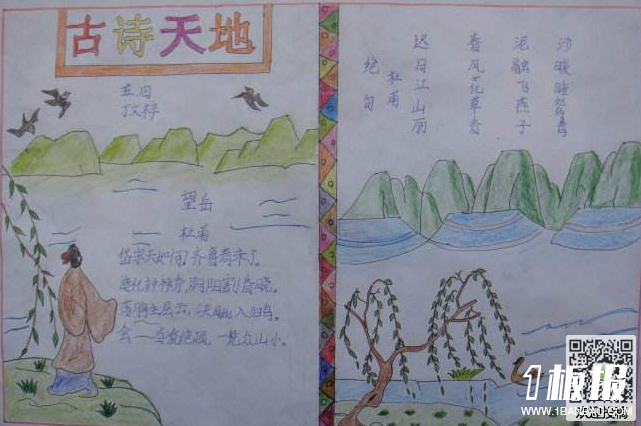 古诗天地
望岳
杜甫
岱宗夫如何,齐鲁青未了。
造化钟神秀,阴阳割昏晓。
荡胸生层云,决眦入归鸟。
会当凌绝顶,一览众山小。
绝句
杜甫
迟日江山丽
春风花草香
泥融飞燕子
沙暖睡鸳鸯
1板报
WWW.1BANBAO.COM